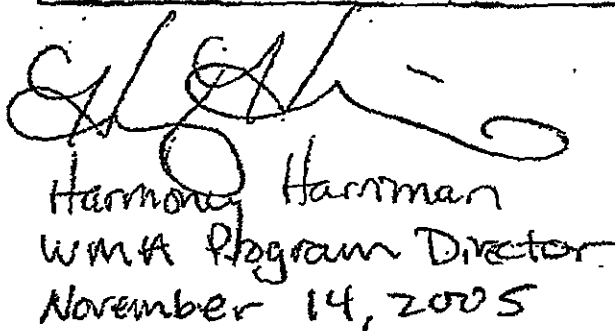 Harmony Harriman
WMA Program Director
November 14, 2005